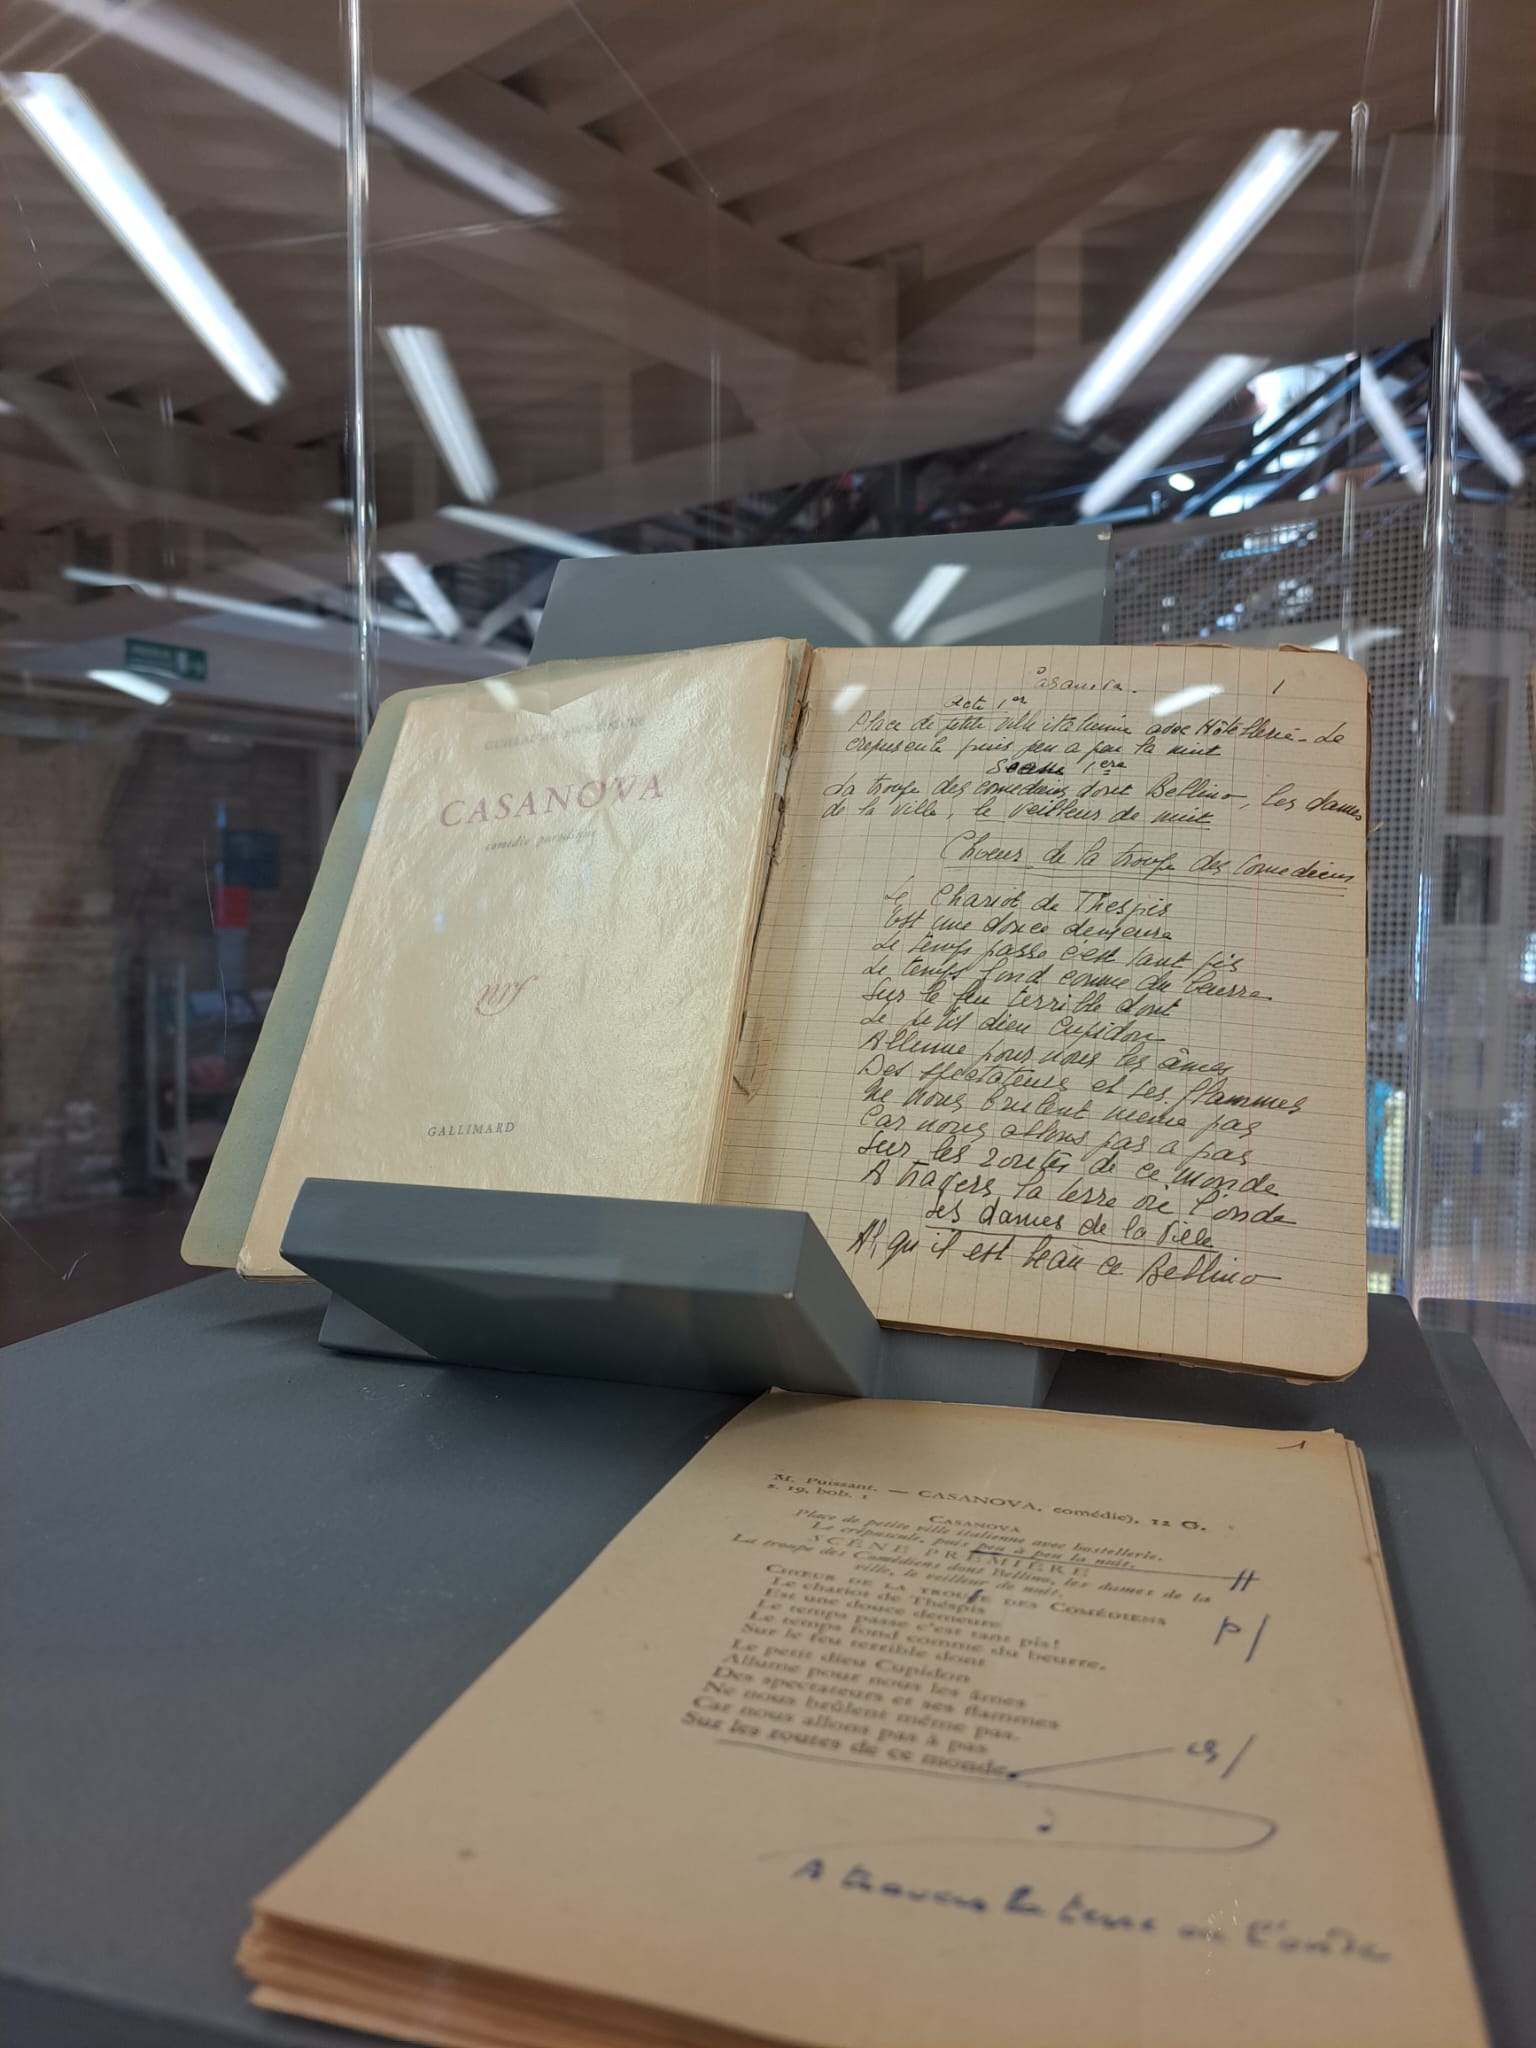 GUILLAUME APOLLINAIRE
CASANOVA
comédie parodique
nrf
GALLIMARD
Casanova.
1
Acte 1er
Place de petite ville italienne avec Hôtellerie - Le
crepuscule puis peu a peu la nuit
Scene 1ere
La troupe des comediens dont Bellino, les dames
de la ville, le veilleur de nuit
Choeur de la troupe des Comediens
Le Chariot de Thespis
Est une douce demeure
Le temps passe c'est tant pis
Le temps fond comme du beurre
Sur le feu terrible dont
Le petit dieu Cupidon
Allume pour nous les âmes
Des spectateurs et ses flammes
Ne nous brulent meme pas
Car nous allons pas a pas
Sur les routes de ce monde
A travers la terre où l'onde
Les dames de la Ville
Ah, qu'il est beau ce Bellino
1
M. Puissant. — CASANOVA, comédie), 12 G.
2. 19, bob. 1
CASANOVA
Place de petite ville italienne avec hostellerie.
Le crépuscule, puis peu à peu la nuit.
SCÈNE PREMIÈRE
La troupe des Comédiens dont Bellino, les dames de la
ville, le veilleur de nuit.
CHŒUR DE LA TROUPE DES COMÉDIENS
Le chariot de Théspis
Est une douce demeure
Le temps passe c'est tant pis!
Le temps fond comme du beurre,
Sur le feu terrible dont
Le petit dieu Cupidon
Allume pour nous les âmes
Des spectateurs et ses flammes
Ne nous brûlent même pas.
Car nous allons pas à pas
Sur les routes de ce monde.
p/
A travers la terre ou l'onde